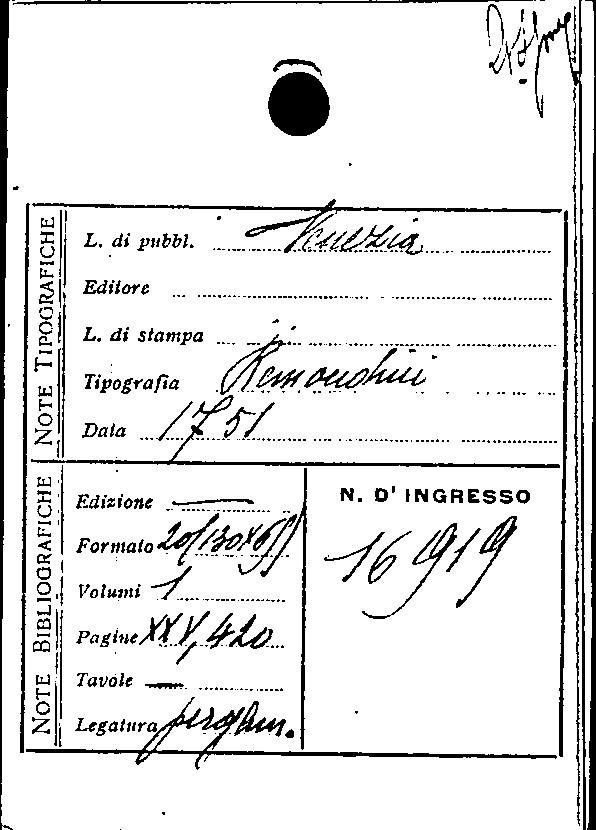 NOTE TIPOGRAFICHE
L. di pubbl. Venezia
Editore
L. di stampa "
Tipografia Remondini
Data 1751
NOTE BIBLIOGRAFICHE
Edizione —
Formato 20/130x
Volumi 1
Pagine XXV, 420
Tavole —
Legatura pergam.
N. D' INGRESSO
16919